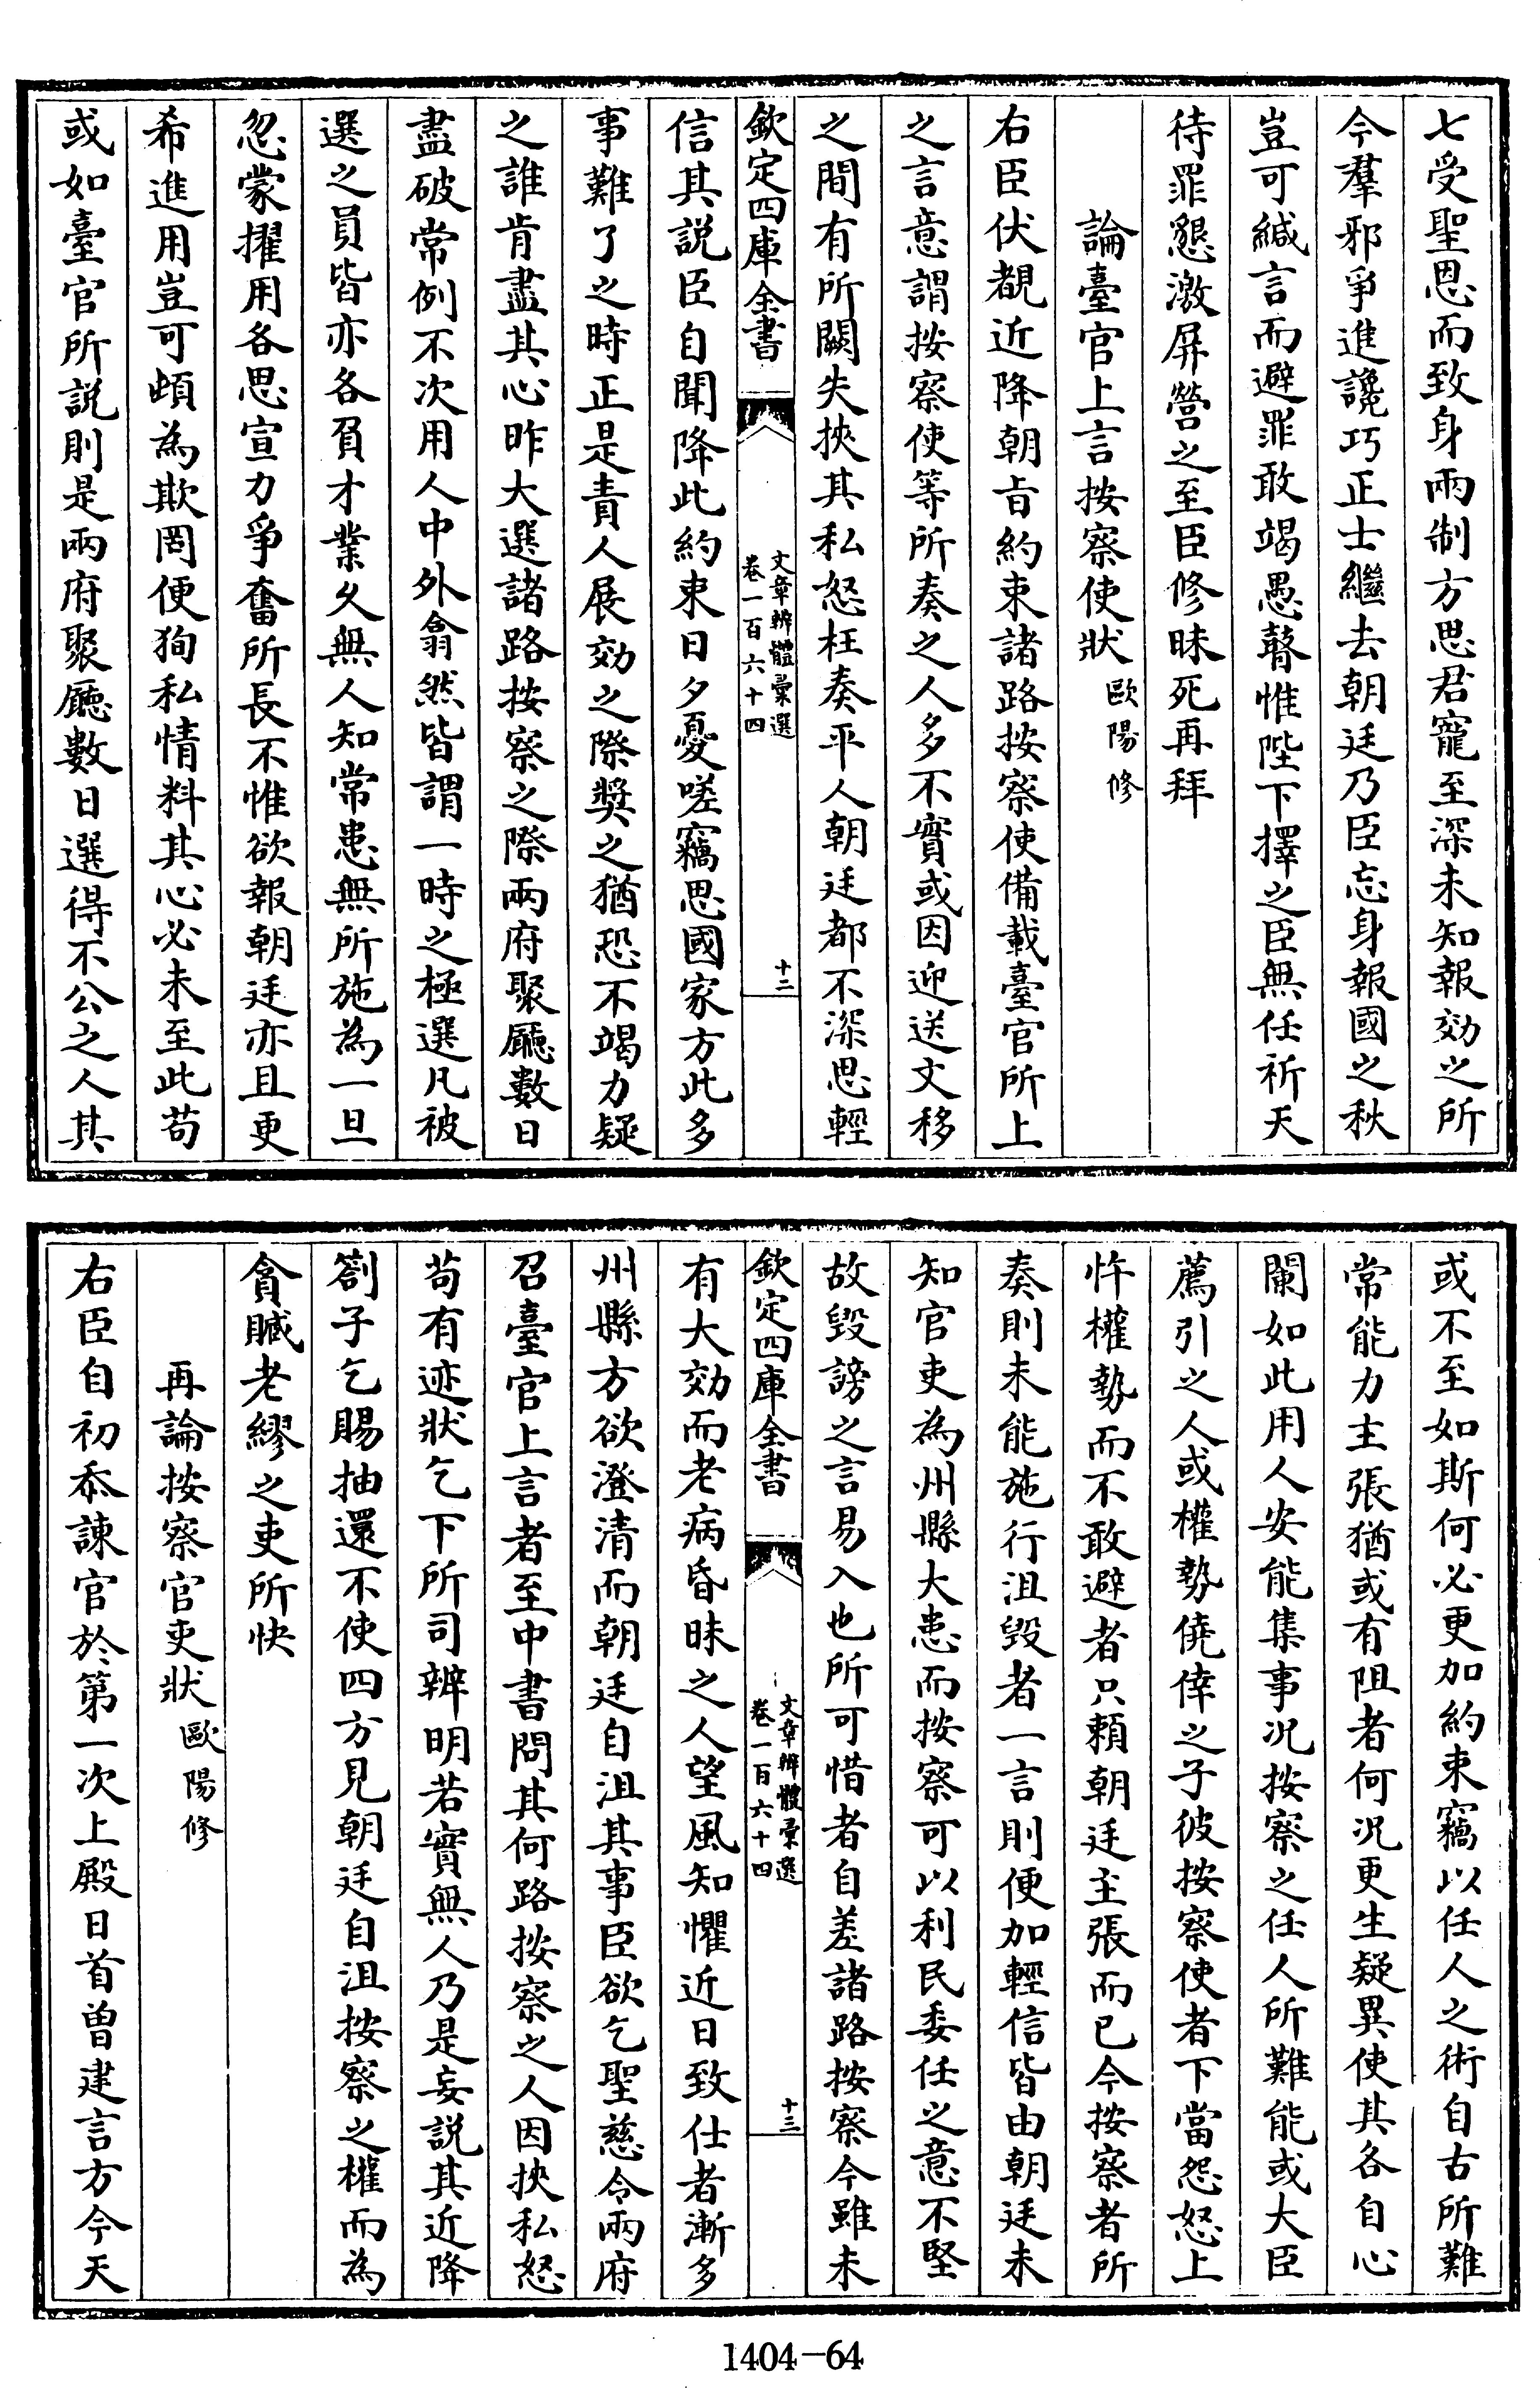 七受聖恩而致身兩制方思君寵至深未知報効之所
今羣邪爭進讒巧正士繼去朝廷乃臣忘身報國之秋
豈可緘言而避罪敢竭愚瞽惟陛下擇之臣無任祈天
待罪懇激屏營之至臣修昧死再拜
論臺官上言按察使狀 歐陽修
右臣伏覩近降朝旨約束諸路按察使備載臺官所上
之言意謂按察使等所奏之人多不實或因迎送文移
之間有所闕失挾其私怒枉奏平人朝廷都不深思輕
欽定四庫全書 文章辨體彙選 卷一百六十四 十二
信其説臣自聞降此約束日夕憂嗟竊思國家方此多
事難了之時正是責人展効之際奬之猶恐不竭力疑
之誰肯盡其心昨大選諸路按察之際兩府聚廳數日
盡破常例不次用人中外翕然皆謂一時之極選凡被
選之員皆亦各負才業久無人知常患無所施為一旦
忽蒙擢用各思宣力爭奮所長不惟欲報朝廷亦且更
希進用豈可頓為欺罔便狥私情料其心必未至此苟
或如臺官所説則是兩府聚廳數日選得不公之人其
或不至如斯何必更加約束竊以任人之術自古所難
常能力主張猶或有阻者何況更生疑異使其各自心
闌如此用人安能集事况按察之任人所難能或大臣
薦引之人或權勢僥倖之子彼按察使者下當怨怒上
忤權勢而不敢避者只頼朝廷主張而已今按察者所
奏則未能施行沮毁者一言則便加輕信皆由朝廷未
知官吏為州縣大患而按察可以利民委任之意不堅
故毁謗之言易入也所可惜者自差諸路按察今雖未
欽定四庫全書 文章辨體彙選 卷一百六十四 十三
有大効而老病昏昧之人望風知懼近日致仕者漸多
州縣方欲澄清而朝廷自沮其事臣欲乞聖慈令兩府
召臺官上言者至中書問其何路按察之人因挾私怒
苟有迹狀乞下所司辨明若實無人乃是妄説其近降
劄子乞賜抽還不使四方見朝廷自沮按察之權而為
貪贓老繆之吏所快
再論按察官吏狀 歐陽修
右臣自初忝諫官於第一次上殿日首曽建言方今天
1404-64